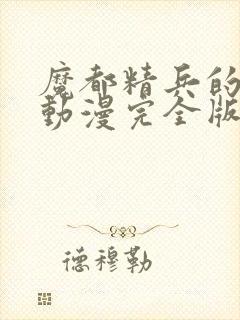 魔都精兵的
動漫完全版
德穆勒